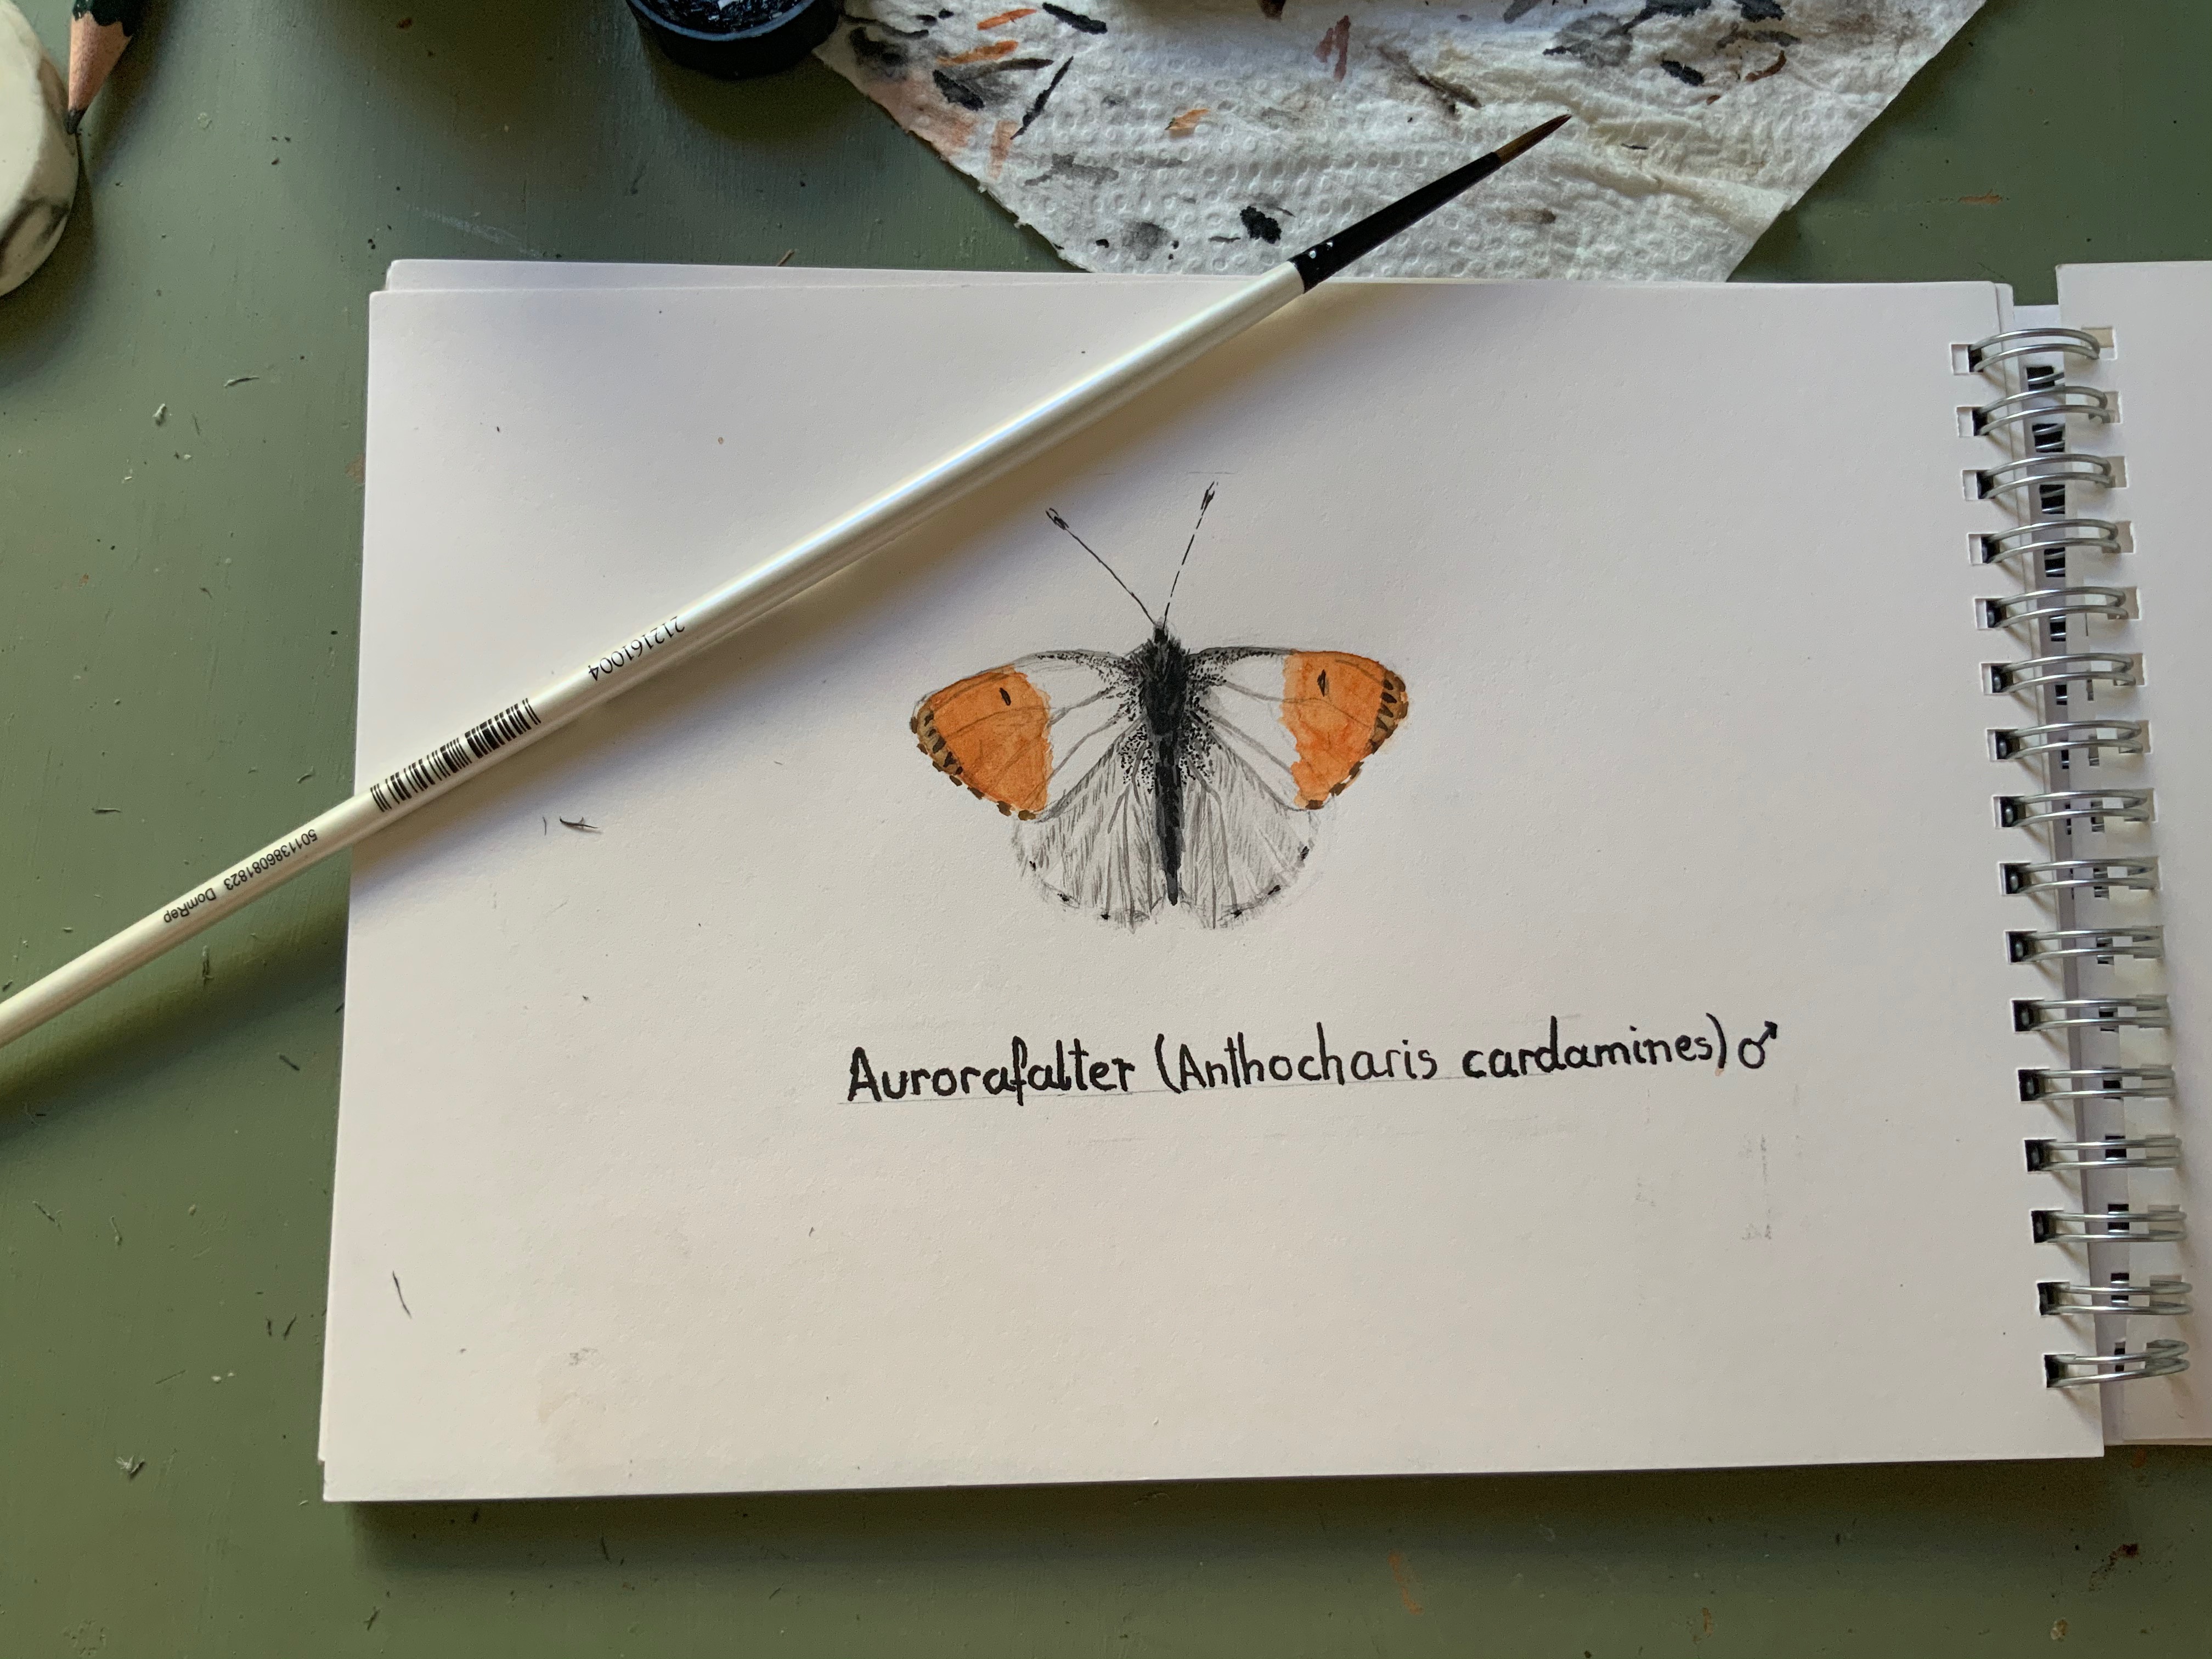 212161004
5011386081823 DomRep
Aurorafalter (Anthocharis cardamines) ♂